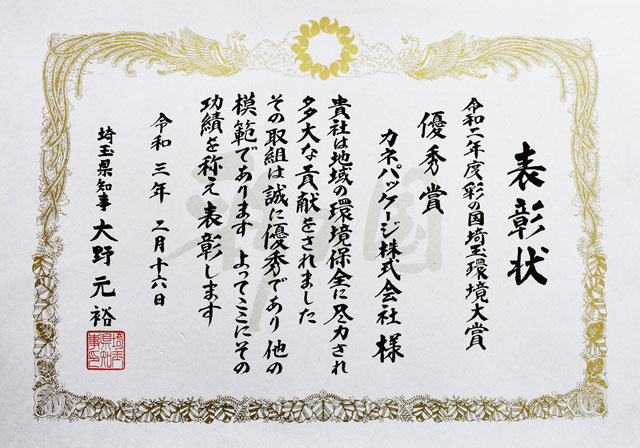 表彰状
令和二年度彩の国埼玉環境大賞
優秀賞
カネパッケージ株式会社 様
貴社は地域の環境保全に尽力され
多大な貢献をされました
その取組は誠に優秀であり 他の
模範であります よってここにその
功績を称え表彰します
令和三年 二月十六日
埼玉県知事 大野元裕
埼玉県知事印